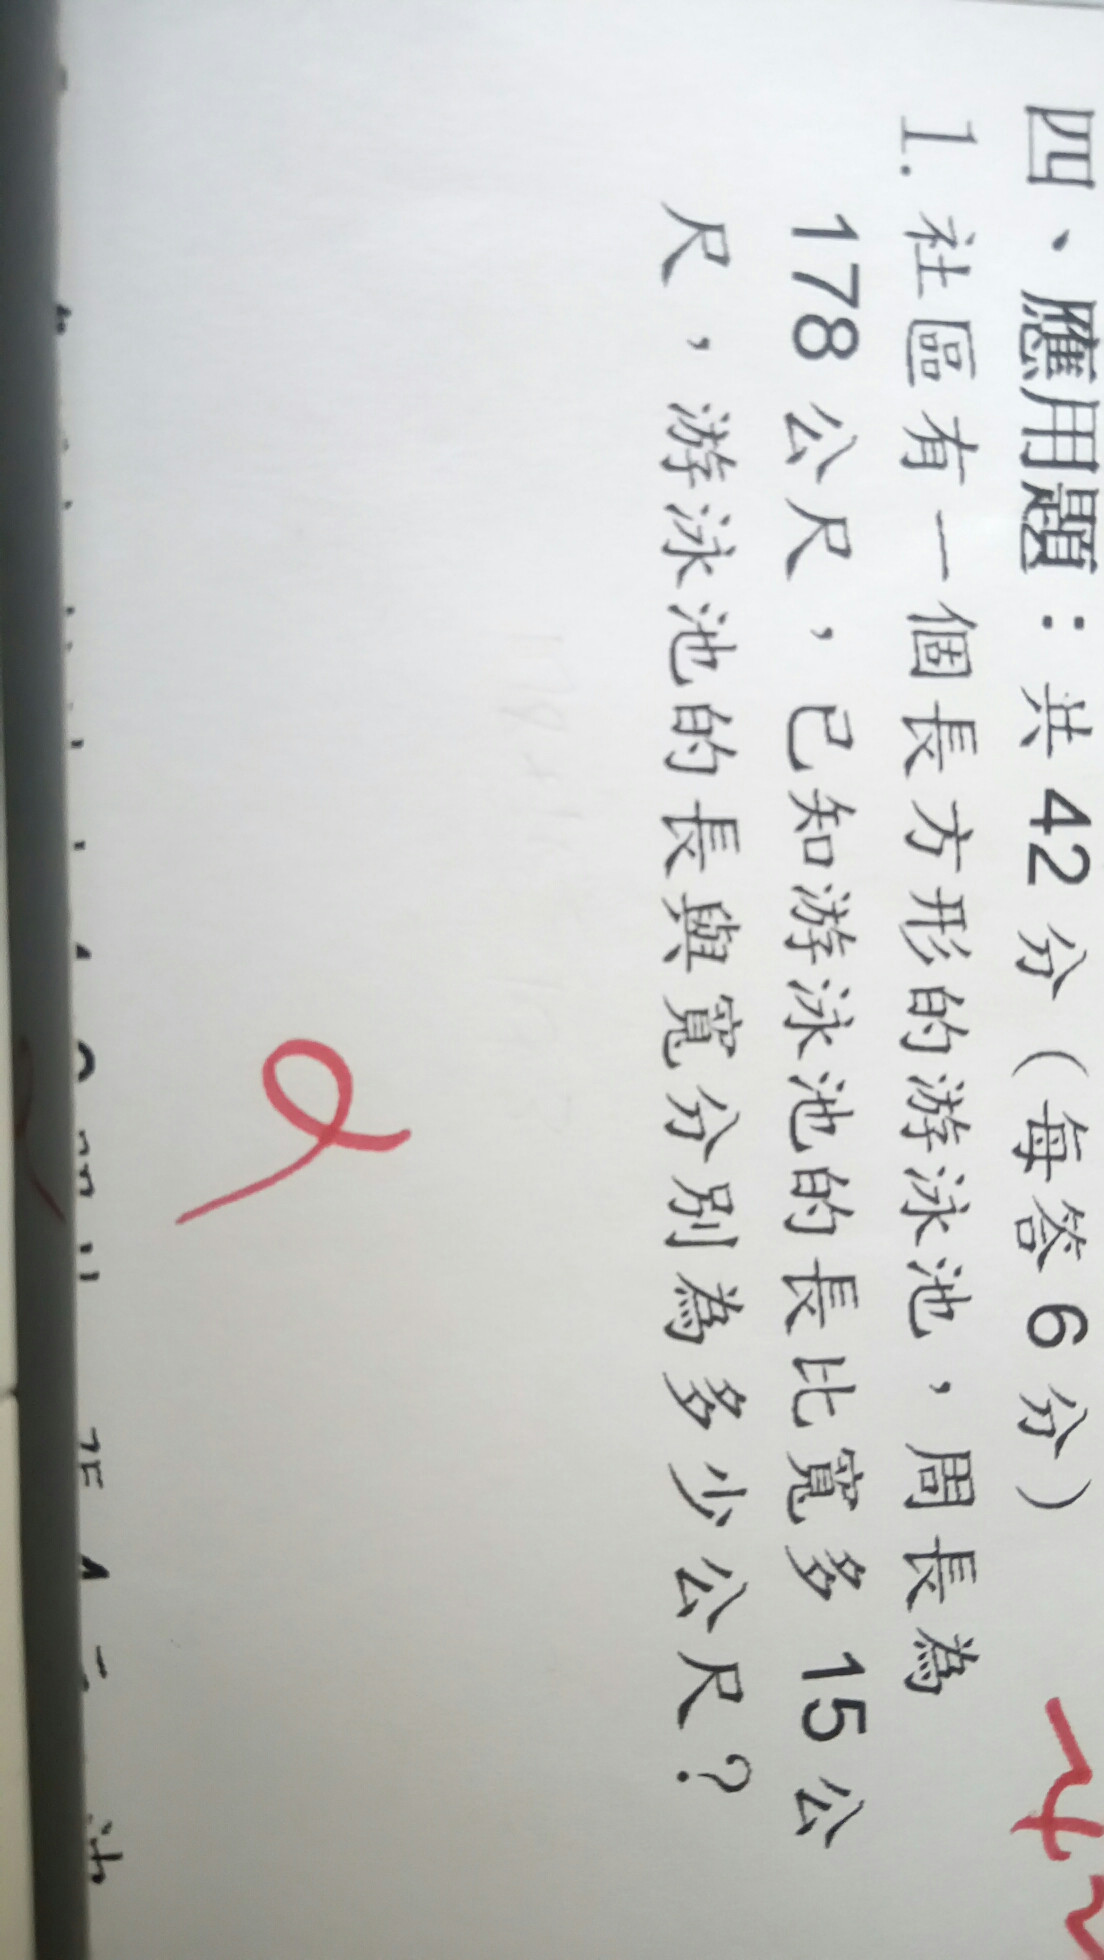 四、應用題：共 42 分（每答 6 分）
1. 社區有一個長方形的游泳池，周長為
178 公尺，已知游泳池的長比寬多 15 公
尺，游泳池的長與寬分別為多少公尺？